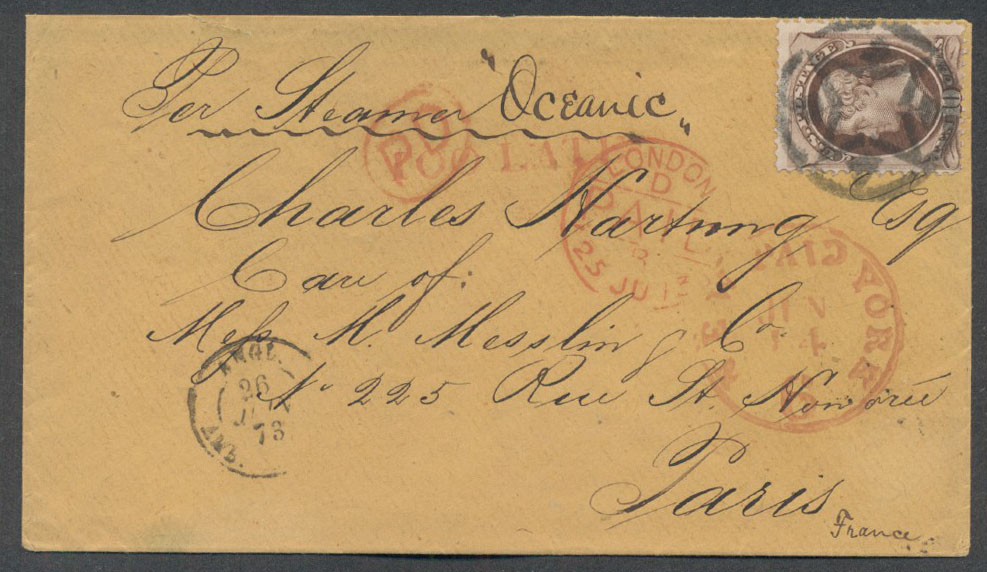 Per Steamer "Oceanic"
PD
TOO LATE
LONDON
D
PAID
25 JU 73
Charles Hartung Esq
Care of:
Mess. M. Messling & Co.
No 225 Rue St. Honorée
Paris
France
YORK
JUN
14
ANGL.
26
JUIN
73
U.S. POSTAGE